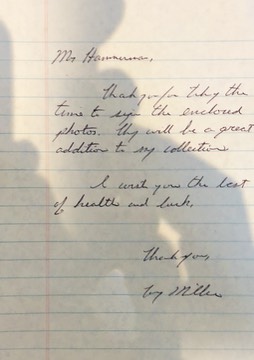 Mr Hammerman,
Thank you for taking the
time to sign the enclosed
photos. They will be a great
addition to my collection
I wish you the best
of health and luck,
Thank you,
Miller